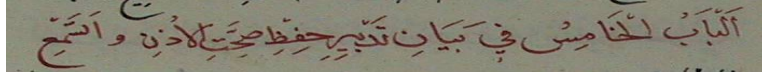 اَلبَابُ الخَامِسُ فِي بَيَانِ تَدْبِيرِ حِفْظِ صِحَّتِ الاُذُنِ وَ السَّمْعِ